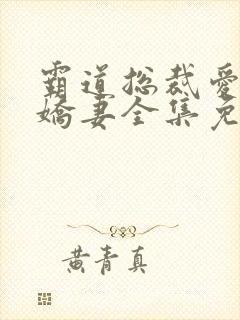 霸道总裁爱
娇妻全集免
黄青真